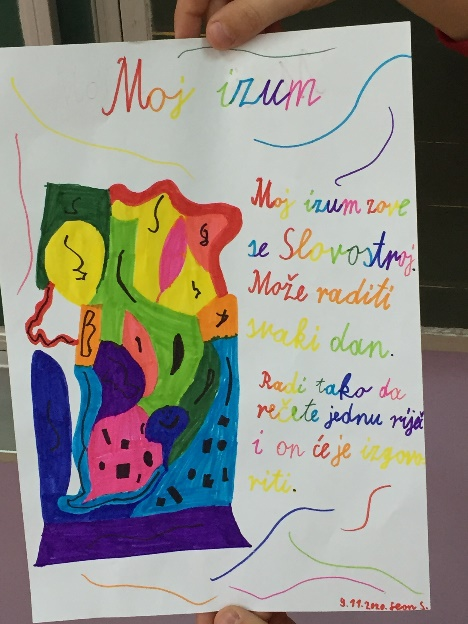 Moj izum
Moj izum zove
se Slovostroj.
Može raditi
svaki dan.
Radi tako da
rečete jednu riječ
i on će je izgovo
riti.
9.11.2020. Leon S.